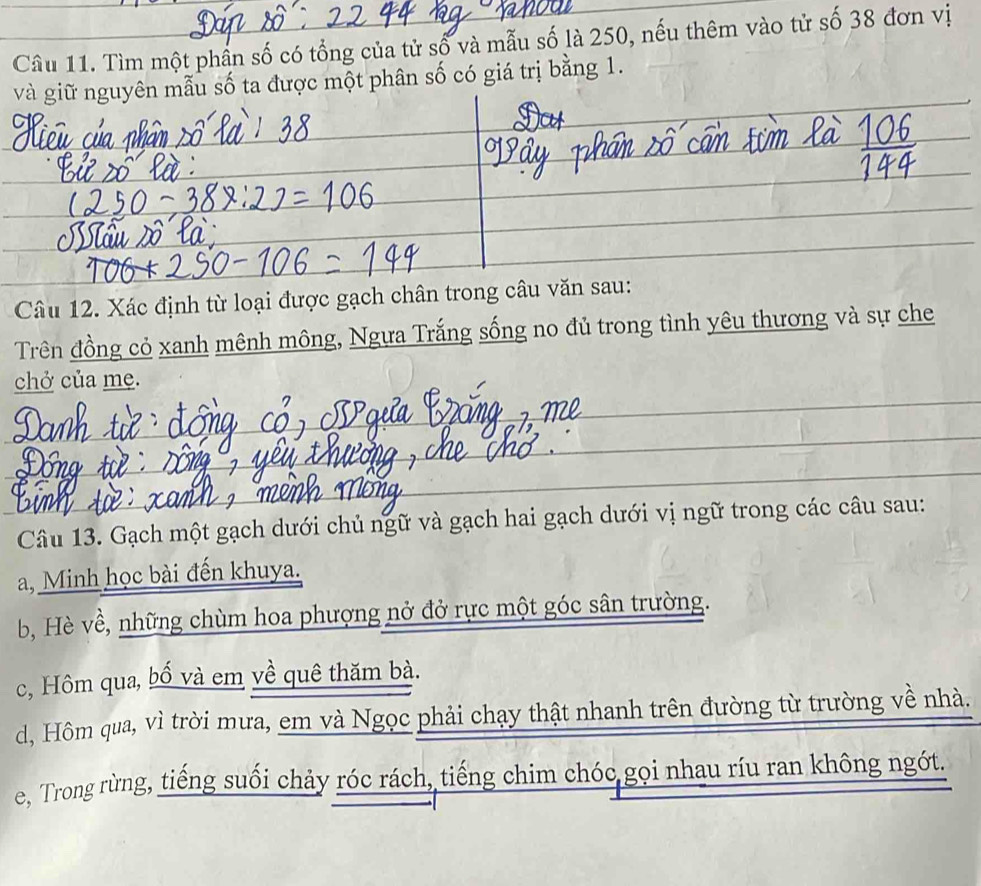 Đáp số: 22 44 kg
Câu 11. Tìm một phân số có tổng của tử số và mẫu số là 250, nếu thêm vào tử số 38 đơn vị
và giữ nguyên mẫu số ta được một phân số có giá trị bằng 1.
Hiệu của phân số là: 38
Tử số là:
(250 - 38):2) = 106
Mẫu số là:
106 + 250 - 106 = 144
Vậy phân số cần tìm là 106/144
Câu 12. Xác định từ loại được gạch chân trong câu văn sau:
Trên đồng cỏ xanh mênh mông, Ngựa Trắng sống no đủ trong tình yêu thương và sự che
chở của mẹ.
Danh từ: đồng cỏ, Ngựa Trắng, mẹ
Động từ: sống, yêu thương, che chở.
Tính từ: xanh, mênh mông
Câu 13. Gạch một gạch dưới chủ ngữ và gạch hai gạch dưới vị ngữ trong các câu sau:
a, Minh học bài đến khuya.
b, Hè về, những chùm hoa phượng nở đỏ rực một góc sân trường.
c, Hôm qua, bố và em về quê thăm bà.
d, Hôm qua, vì trời mưa, em và Ngọc phải chạy thật nhanh trên đường từ trường về nhà.
e, Trong rừng, tiếng suối chảy róc rách, tiếng chim chóc gọi nhau ríu ran không ngớt.